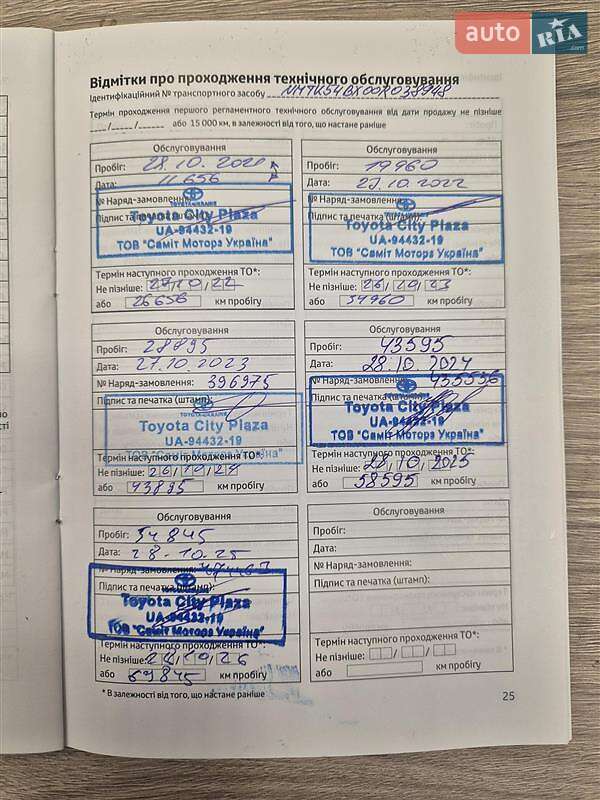 auto RIA.com
Відмітки про проходження технічного обслуговування
Ідентифікаційний № транспортного засобу
Термін проходження першого регламентного технічного обслуговування від дати продажу не пізніше
__/__/__ або 15 000 км, в залежності від того, що настане раніше
Обслуговування
Пробіг: 28.10.2021
Дата: 11656
№ Наряд-замовлення:
Підпис та печатка (штамп):
TOYOTA UKRAINE
Toyota City Plaza
UA-94432-19
ТОВ "Саміт Моторз Україна"
Термін наступного проходження ТО*:
Не пізніше: 27.10.22
або 26656 км пробігу
Обслуговування
Пробіг: 19960
Дата: 27.10.2022
№ Наряд-замовлення:
Підпис та печатка (штамп):
Toyota City Plaza
UA-94432-19
ТОВ "Саміт Моторз Україна"
Термін наступного проходження ТО*:
Не пізніше: 26.10.23
або 34960 км пробігу
Обслуговування
Пробіг: 28895
Дата: 27.10.2023
№ Наряд-замовлення: 396975
Підпис та печатка (штамп):
Toyota City Plaza
UA-94432-19
ТОВ "Саміт Моторз Україна"
Термін наступного проходження ТО*:
Не пізніше: 26.10.24
або 43895 км пробігу
Обслуговування
Пробіг: 43595
Дата: 28.10.2024
№ Наряд-замовлення: 435556
Підпис та печатка (штамп):
Toyota City Plaza
UA-94432-19
ТОВ "Саміт Моторз Україна"
Термін наступного проходження ТО*:
Не пізніше: 28.10.2025
або 58595 км пробігу
Обслуговування
Пробіг: 54845
Дата: 28.10.25
№ Наряд-замовлення:
Підпис та печатка (штамп):
Toyota City Plaza
UA-94432-19
ТОВ "Саміт Моторз Україна"
Термін наступного проходження ТО*:
Не пізніше: 28.10.26
або 69845 км пробігу
Обслуговування
Пробіг:
Дата:
№ Наряд-замовлення:
Підпис та печатка (штамп):
Термін наступного проходження ТО*:
Не пізніше:
або км пробігу
* В залежності від того, що настане раніше
25